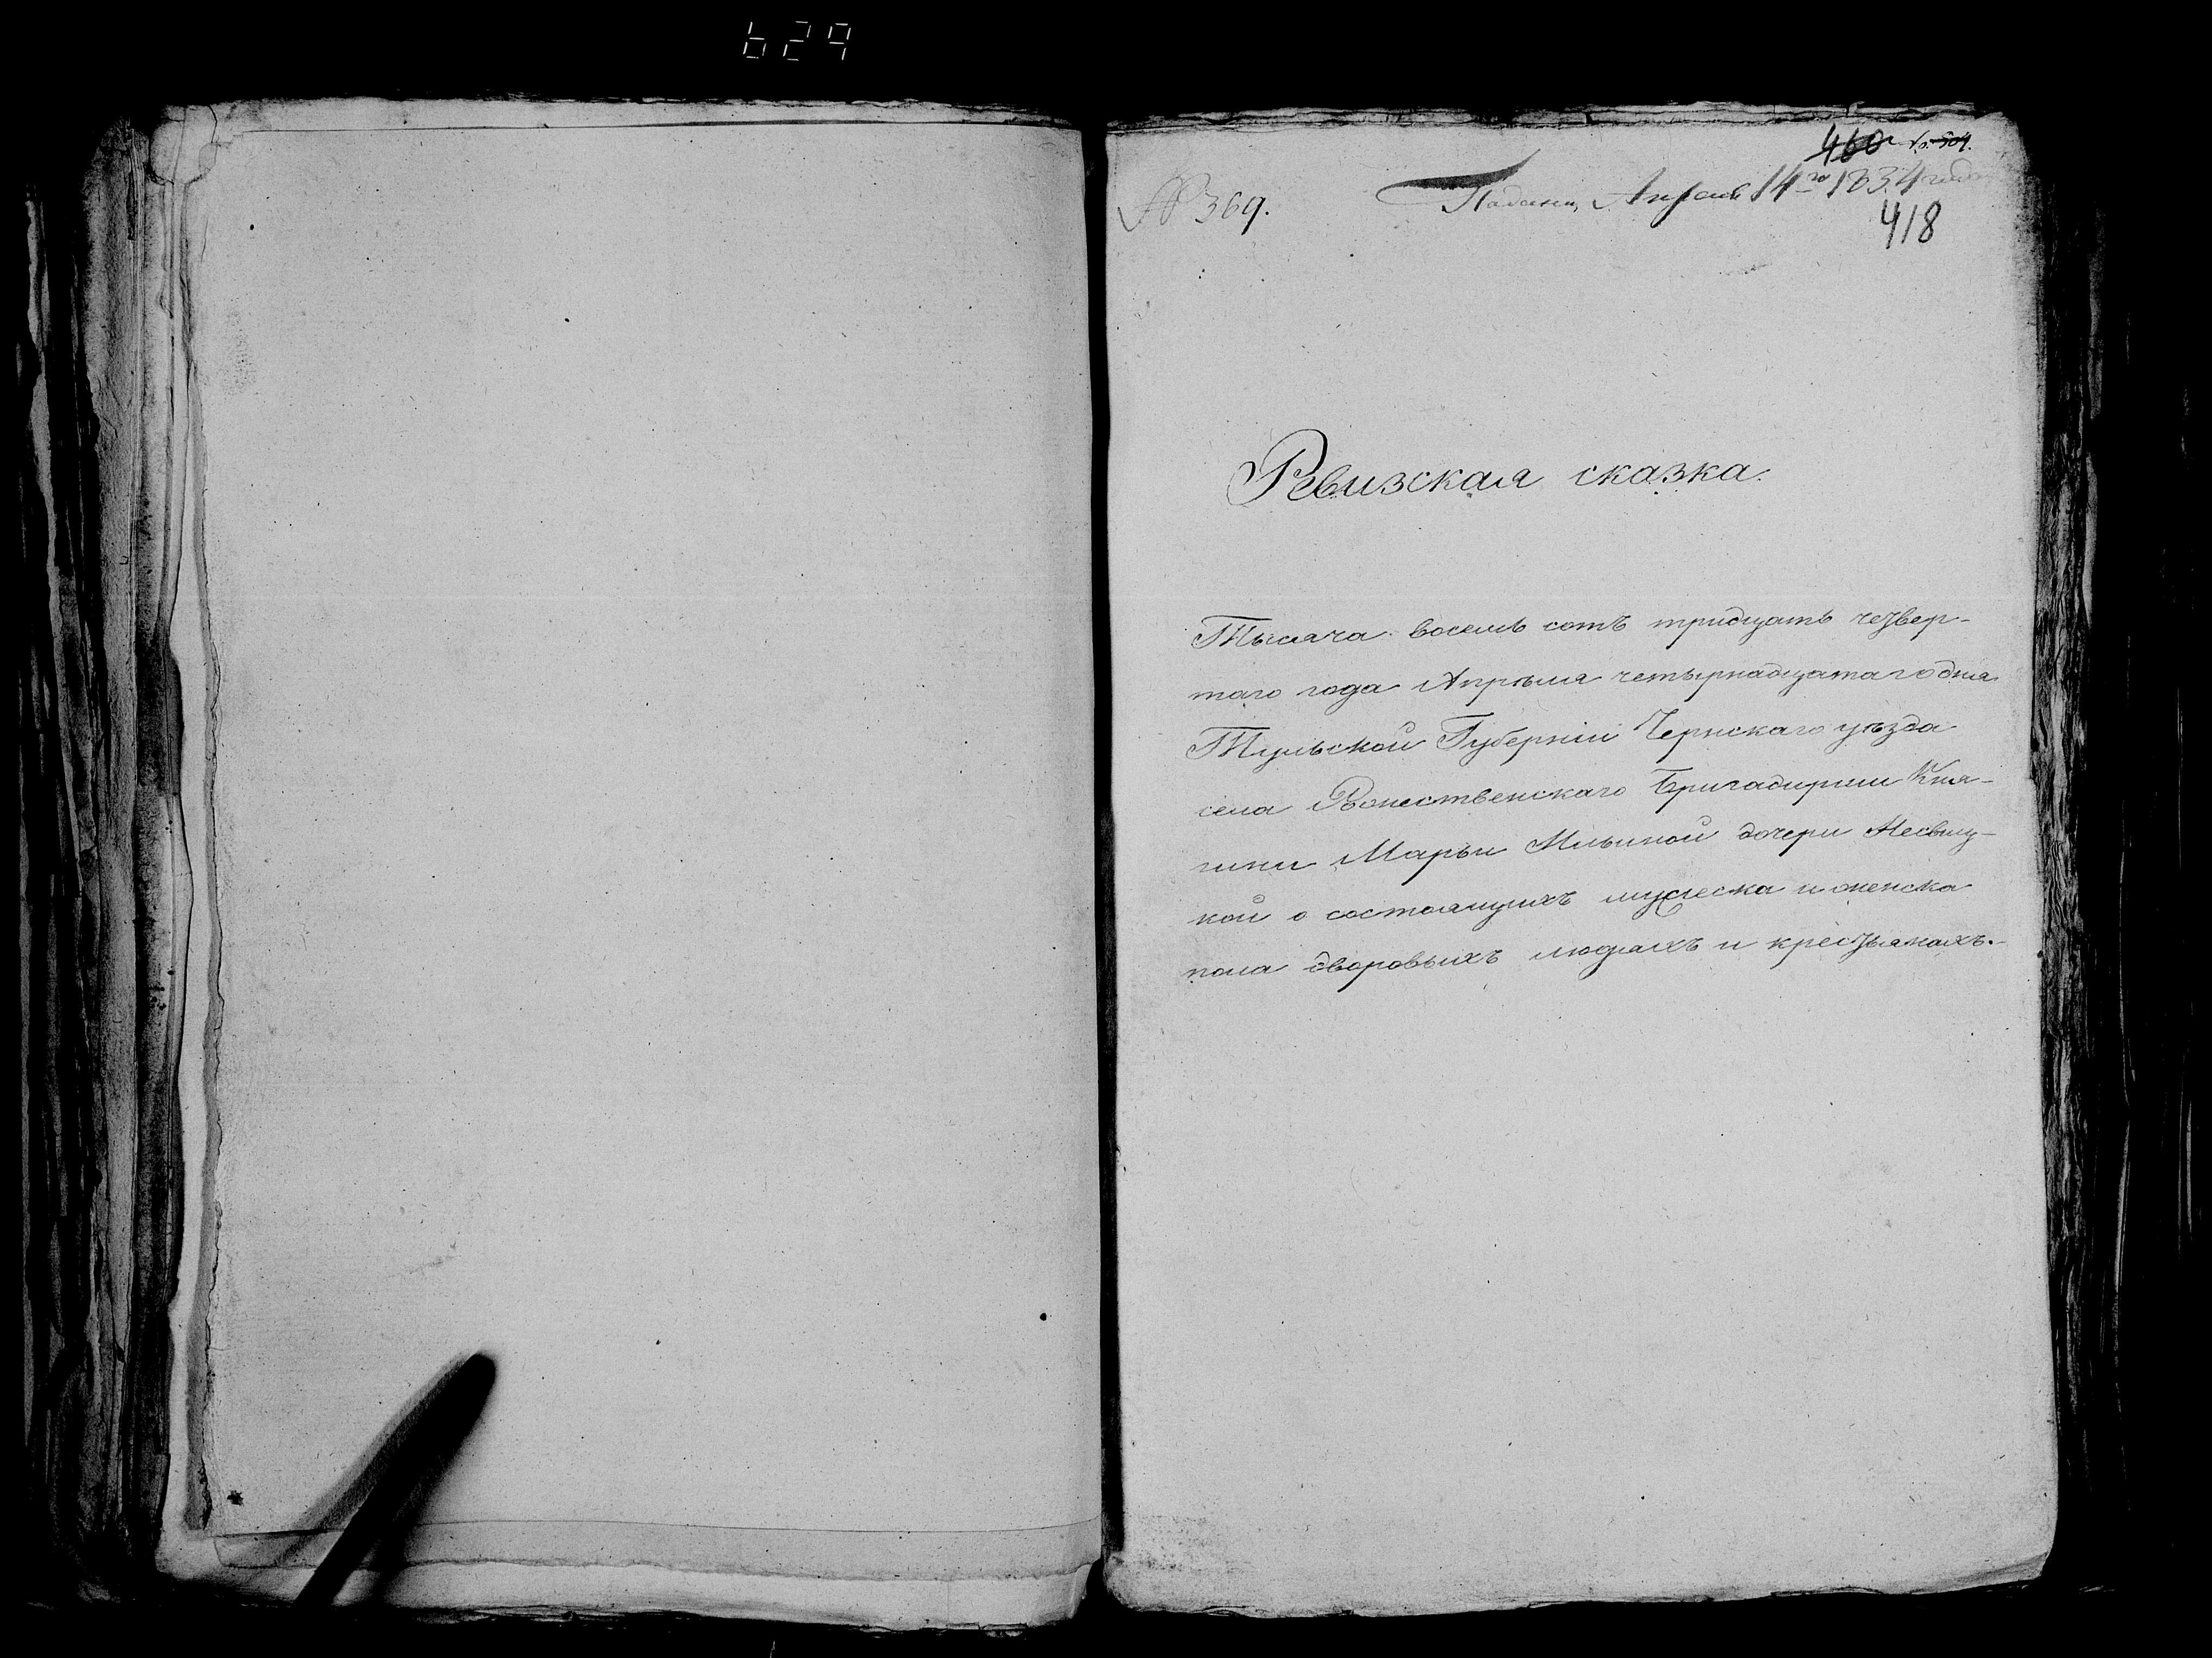 629
460
№ 369.
Подана Апреля 14го 1834 года
418
Ревизская сказка.
Тысяча восемь сотъ тридцать четвер-
таго года Апрѣля четырнадцатаго дня
Тульской Губерніи Чернскаго уѣзда
села Рожественскаго Бригадирши Кня-
гини Марьи Ильиной дочери Несвиц-
кой о состоящихъ мужеска и женска
пола дворовыхъ людяхъ и крестьянахъ.